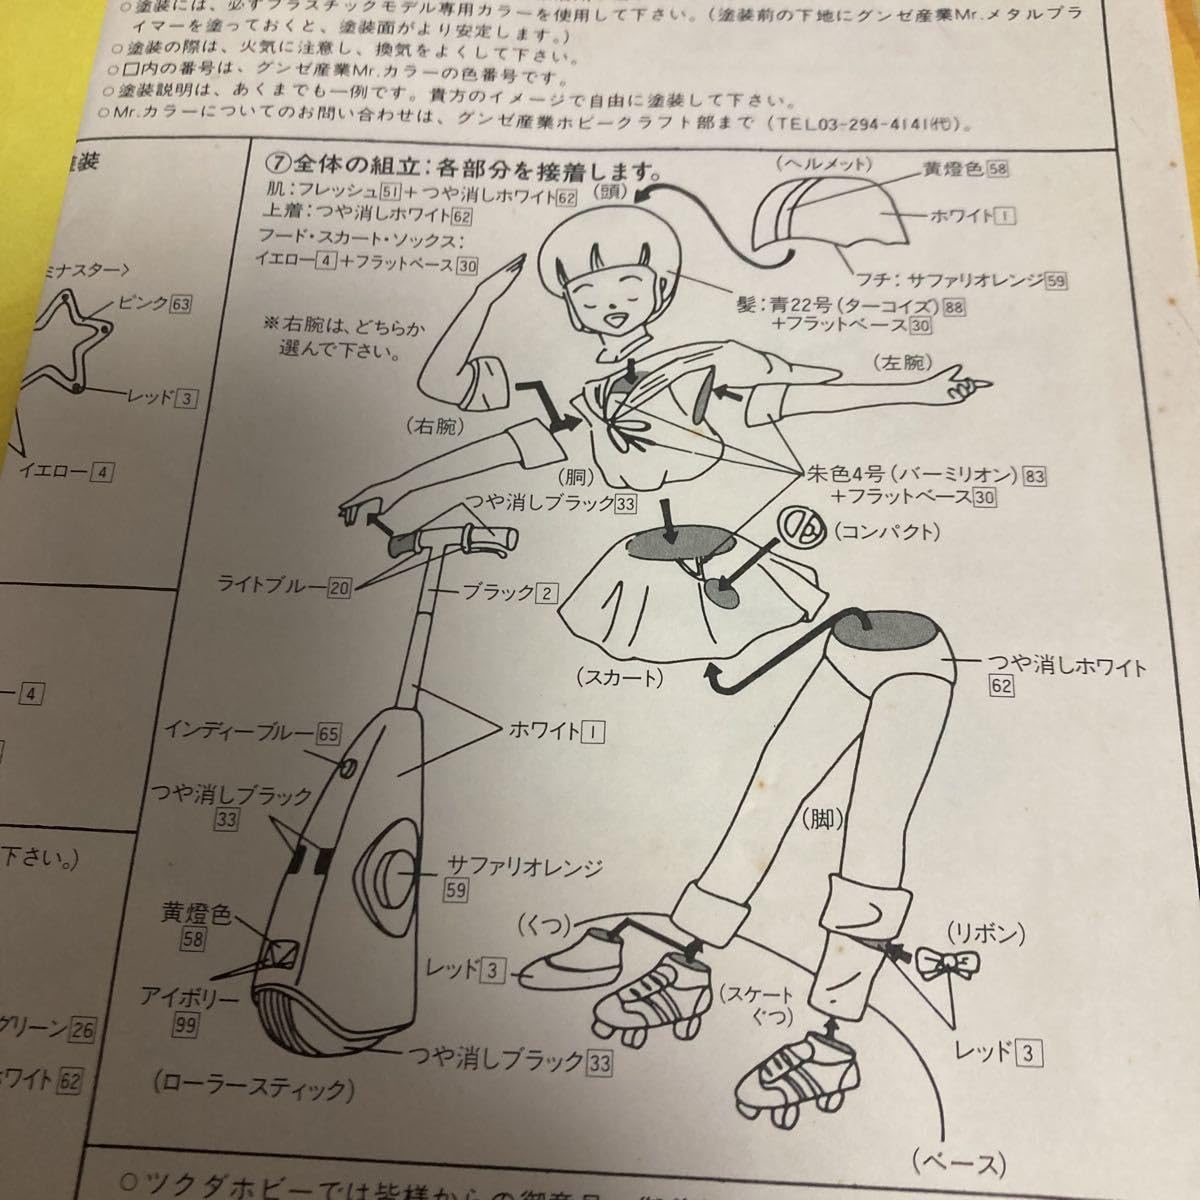 ○塗装には、必ずプラスチックモデル専用カラーを使用して下さい。(塗装前の下地にグンゼ産業Mr.メタルプラ
イマーを塗っておくと、塗装面がより安定します。)
○塗装の際は、火気に注意し、換気をよくして下さい。
○口内の番号は、グンゼ産業Mr.カラーの色番号です。
○塗装説明は、あくまでも一例です。貴方のイメージで自由に塗装して下さい。
○Mr.カラーについてのお問い合わせは、グンゼ産業ホビークラフト部まで(TEL03-294-4141代)。
塗装
ミナスター〉
ピンク63
レッド3
イエロー4
ー4
下さい。)
グリーン26
ホワイト62
⑦全体の組立:各部分を接着します。
肌:フレッシュ51+つや消しホワイト62
上着:つや消しホワイト62
フード・スカート・ソックス:
イエロー4+フラットベース30
※右腕は、どちらか
選んで下さい。
(頭)
(ヘルメット)
黄燈色58
ホワイト1
フチ:サファリオレンジ59
髪:青22号(ターコイズ)88
+フラットベース30
(左腕)
(右腕)
(胴)
朱色4号(バーミリオン)83
+フラットベース30
つや消しブラック33
(コンパクト)
ライトブルー20
ブラック2
(スカート)
つや消しホワイト
62
インディーブルー65
ホワイト1
つや消しブラック
33
(脚)
サファリオレンジ
59
黄燈色
58
(くつ)
(リボン)
レッド3
アイボリー
99
(スケート
ぐつ)
つや消しブラック33
レッド3
(ローラースティック)
(ベース)
○ツクダホビーでは皆様からの御意見